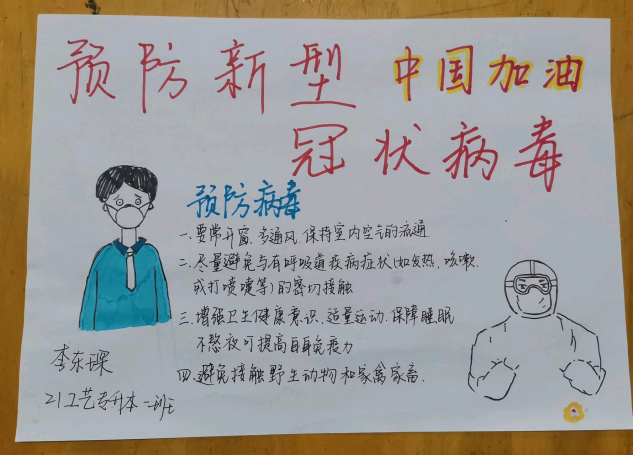 预防新型 中国加油
冠状病毒
预防病毒
一、要常开窗，多通风，保持室内空气的流通
二、尽量避免与有呼吸道疫病症状(如发热，咳嗽
或打喷嚏等)的密切接触
三、增强卫生健康意识，适量运动、保障睡眠
不熬夜可提高自身免疫力
四、避免接触野生动物和家禽家畜.
李东琛
21工艺专升本二班